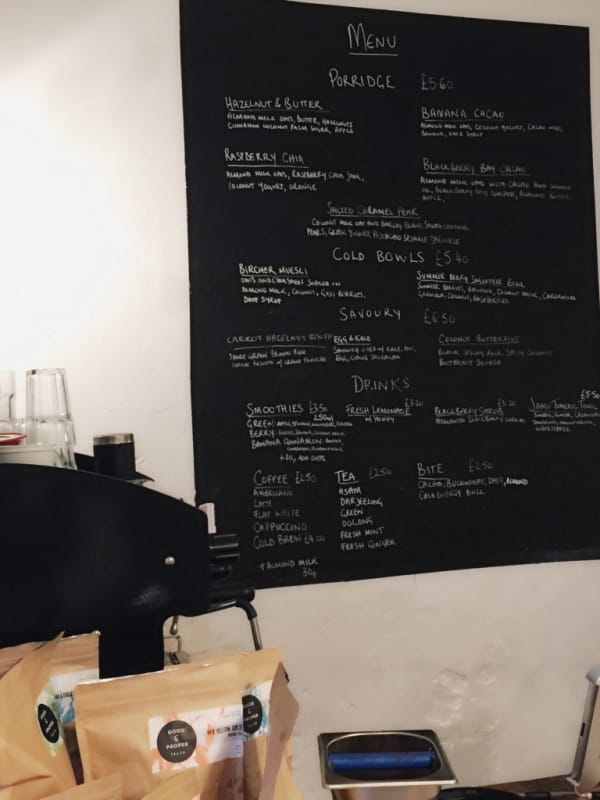 MENU
PORRIDGE £5.60
HAZELNUT & BUTTER
ALMOND MILK OATS, BUTTER, HAZELNUTS
CINNAMON COCONUT PALM SUGAR, APPLE
BANANA CACAO
ALMOND MILK OATS, COCONUT YOGURT, CACAO NIBS,
BANANA, DATE SYRUP
RASPBERRY CHIA
ALMOND MILK OATS, RASPBERRY CHIA JAM,
COCONUT YOGURT, ORANGE
BLACKBERRY BAY CACAO
ALMOND MILK OATS WITH CACAO AND COCONUT
OIL, BLACKBERRY BAY COMPOTE, ALMOND BUTTER
APPLE,
SALTED CARAMEL PEAR
COCONUT MILK OAT AND BARLEY BLEND, SALTED CARAMEL
PEARS, GREEK YOGURT, PISTACHIO SESAME SPRINKLE
COLD BOWLS £5.40
BIRCHER MUESLI
OATS AND CHIA SEEDS SOAKED IN
ALMOND MILK, COCONUT, GOJI BERRIES,
DATE SYRUP
SUMMER BERRY SMOOTHIE BOWL
SUMMER BERRIES, BANANA, COCONUT MILK, CARDAMOM
GRANOLA, COCONUT, RASPBERRIES
SAVOURY £6.50
CARROT HAZELNUT RISOTTO
SHORT GRAIN BROWN RICE
RISOTTO
EGG & KALE
KALE,
EGG,
COCONUT BUTTERNUT
BLACK STICKY RICE, SPICY COCONUT
BUTTERNUT SQUASH
DRINKS
SMOOTHIES £3.50
GREEN:
BERRY: COCONUT MILK
BANANA CINNAMON:
ADD OATS
FRESH LEMONADE £3.20
W/ HONEY
BLACKBERRY SHRUB £3.20
JAMU TUMERIC TONIC £5.50
COFFEE £2.50
AMERICANO
LATTE
FLAT WHITE
CAPPUCCINO
COLD BREW £4.00
+ ALMOND MILK
30p
TEA £2.50
ASAM
DARJEELING
GREEN
OOLONG
FRESH MINT
FRESH GINGER
BITE £2.50
CACAO, BUCKWHEAT, DATE, ALMOND
CHIA ENERGY BALL
GOOD
&
PROPER
TEA